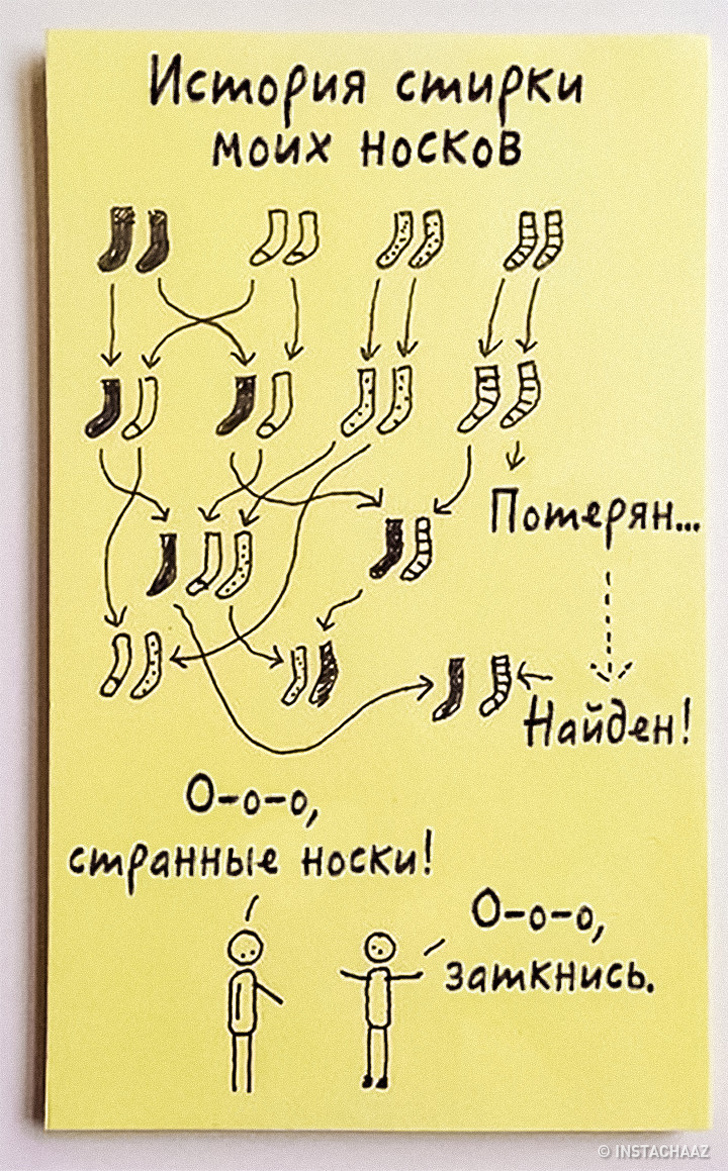 История стирки
моих носков
Потерян...
Найден!
О-о-о,
странные носки!
О-о-о,
заткнись.
© INSTACHAAZ